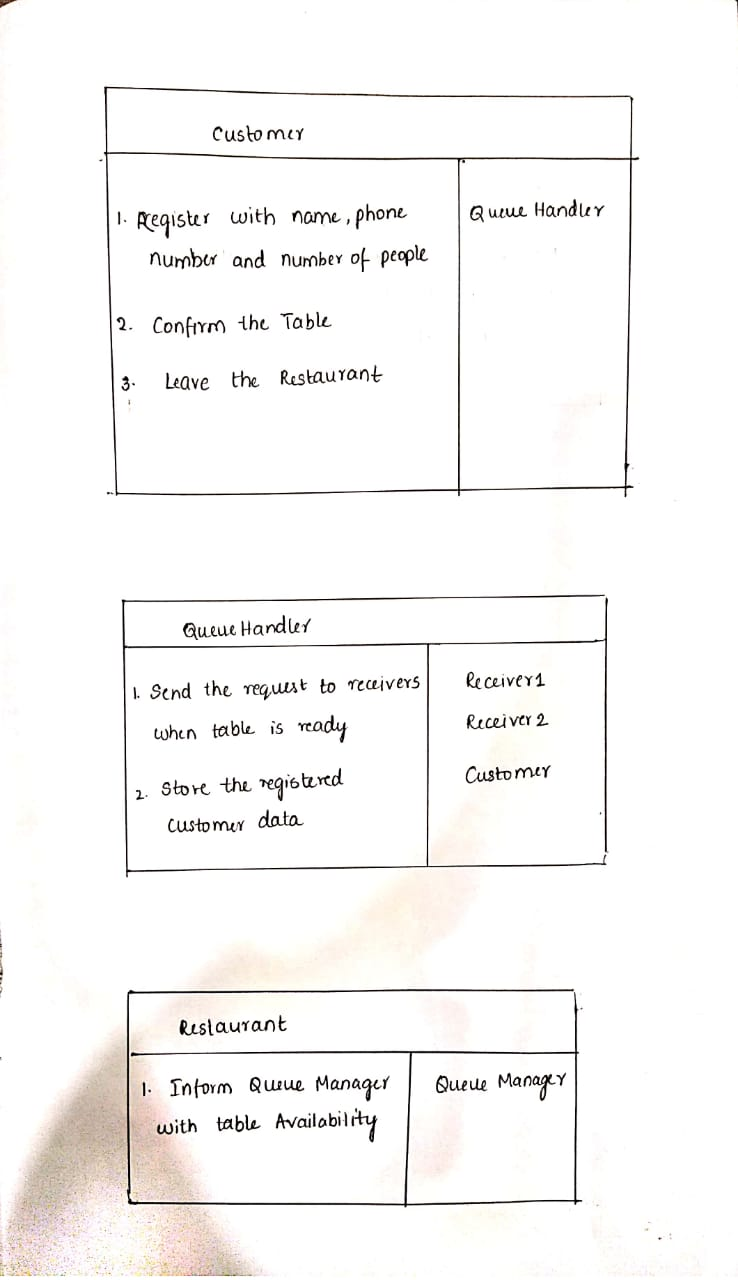 Customer
1. Register with name, phone
number and number of people
Queue Handler
2. Confirm the Table
3. Leave the Restaurant
Queue Handler
1. Send the request to receivers
when table is ready
2. Store the registered
Customer data
Receiver1
Receiver 2
Customer
Restaurant
1. Inform Queue Manager
with table Availability
Queue Manager